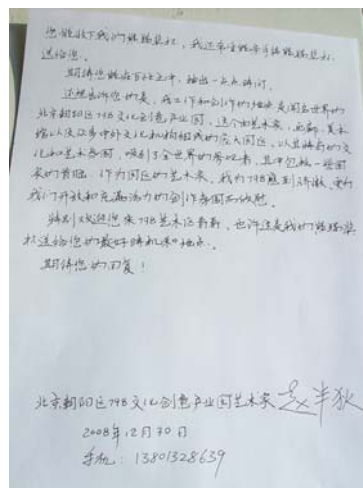 您能收下我们的熊猫艺术，我还希望能亲手将熊猫艺术
送给您。
期待您能在百忙之中，抽出一点点时间。
还想告诉您的是，我工作和创作的地点是闻名世界的
北京朝阳区798文化创意产业园，这个由艺术家，画廊，
以及众多中外文化机构组成的
化和艺术氛围，吸引了全世界的参观者，其中包括一些国
家的首脑。作为园区的艺术家，我为798感到骄傲，更为
我们开放和充满活力的创作氛围而欣慰。
特别欢迎您来798艺术区看看，也许这是我的熊猫艺
术送给您的最好时机和地点。
期待您的回复！
北京朝阳区798文化创意产业园艺术家 赵半狄
2008年12月30日
手机：13801328639